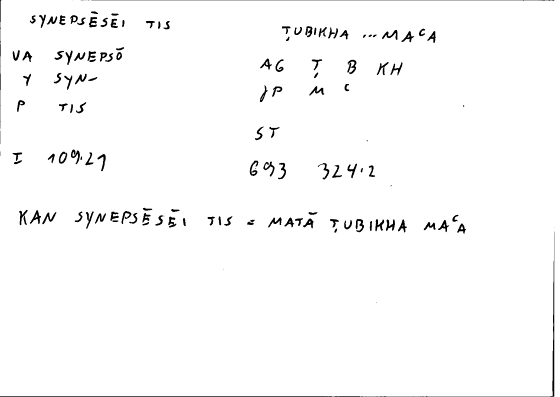 SYNEPSĒSĒI TIS
ṬUBIKHA ... MAᶜA
VA SYNEPSŌ
AG Ṭ B KH
Y SYN-
JP M ᶜ
P TIS
ST
I 109.21
693 324.2
KAN SYNEPSĒSĒI TIS = MATĀ ṬUBIKHA MAᶜA